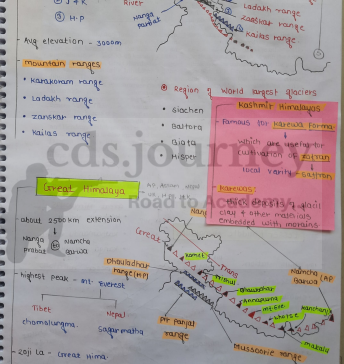 ② J & K
③ H.P
River
Nanga
Parbat
Ladakh range
② zanskar range
③ Kailas range
- Avg elevation - 3000m
mountain ranges
• Karakoram range
• Ladakh range
• zanskar range
• Kailas range
⦿ Region of World largest glaciers
• siachen
• Baltora
• Biafa
• Hisper
Kashmir Himalayas
- Famous for Karewa Forma
which are useful for
cultivation of Zafran
local variety saffron
Karewas:
thick deposits of glacil
clay & other materials
Embedded with morains.
cds.journey
Road to
Great Himalaya
- about 2500 km extension
Nanga
prabat
Namcha
Barwa
- highest peak - mt. Everest
Tibet
Nepal
chomolungma
Sagarmatha
- zoji la - Great Hima
Great
Trans
Dhauladhar
range (HP)
Pir Panjal
range
Kamet
Nanda
Dhauladhar
Annapurna
mt. Eve.
Lhotse
Kanchanj
Makalu
Namcha (AP
Barwa
Mussoorie range